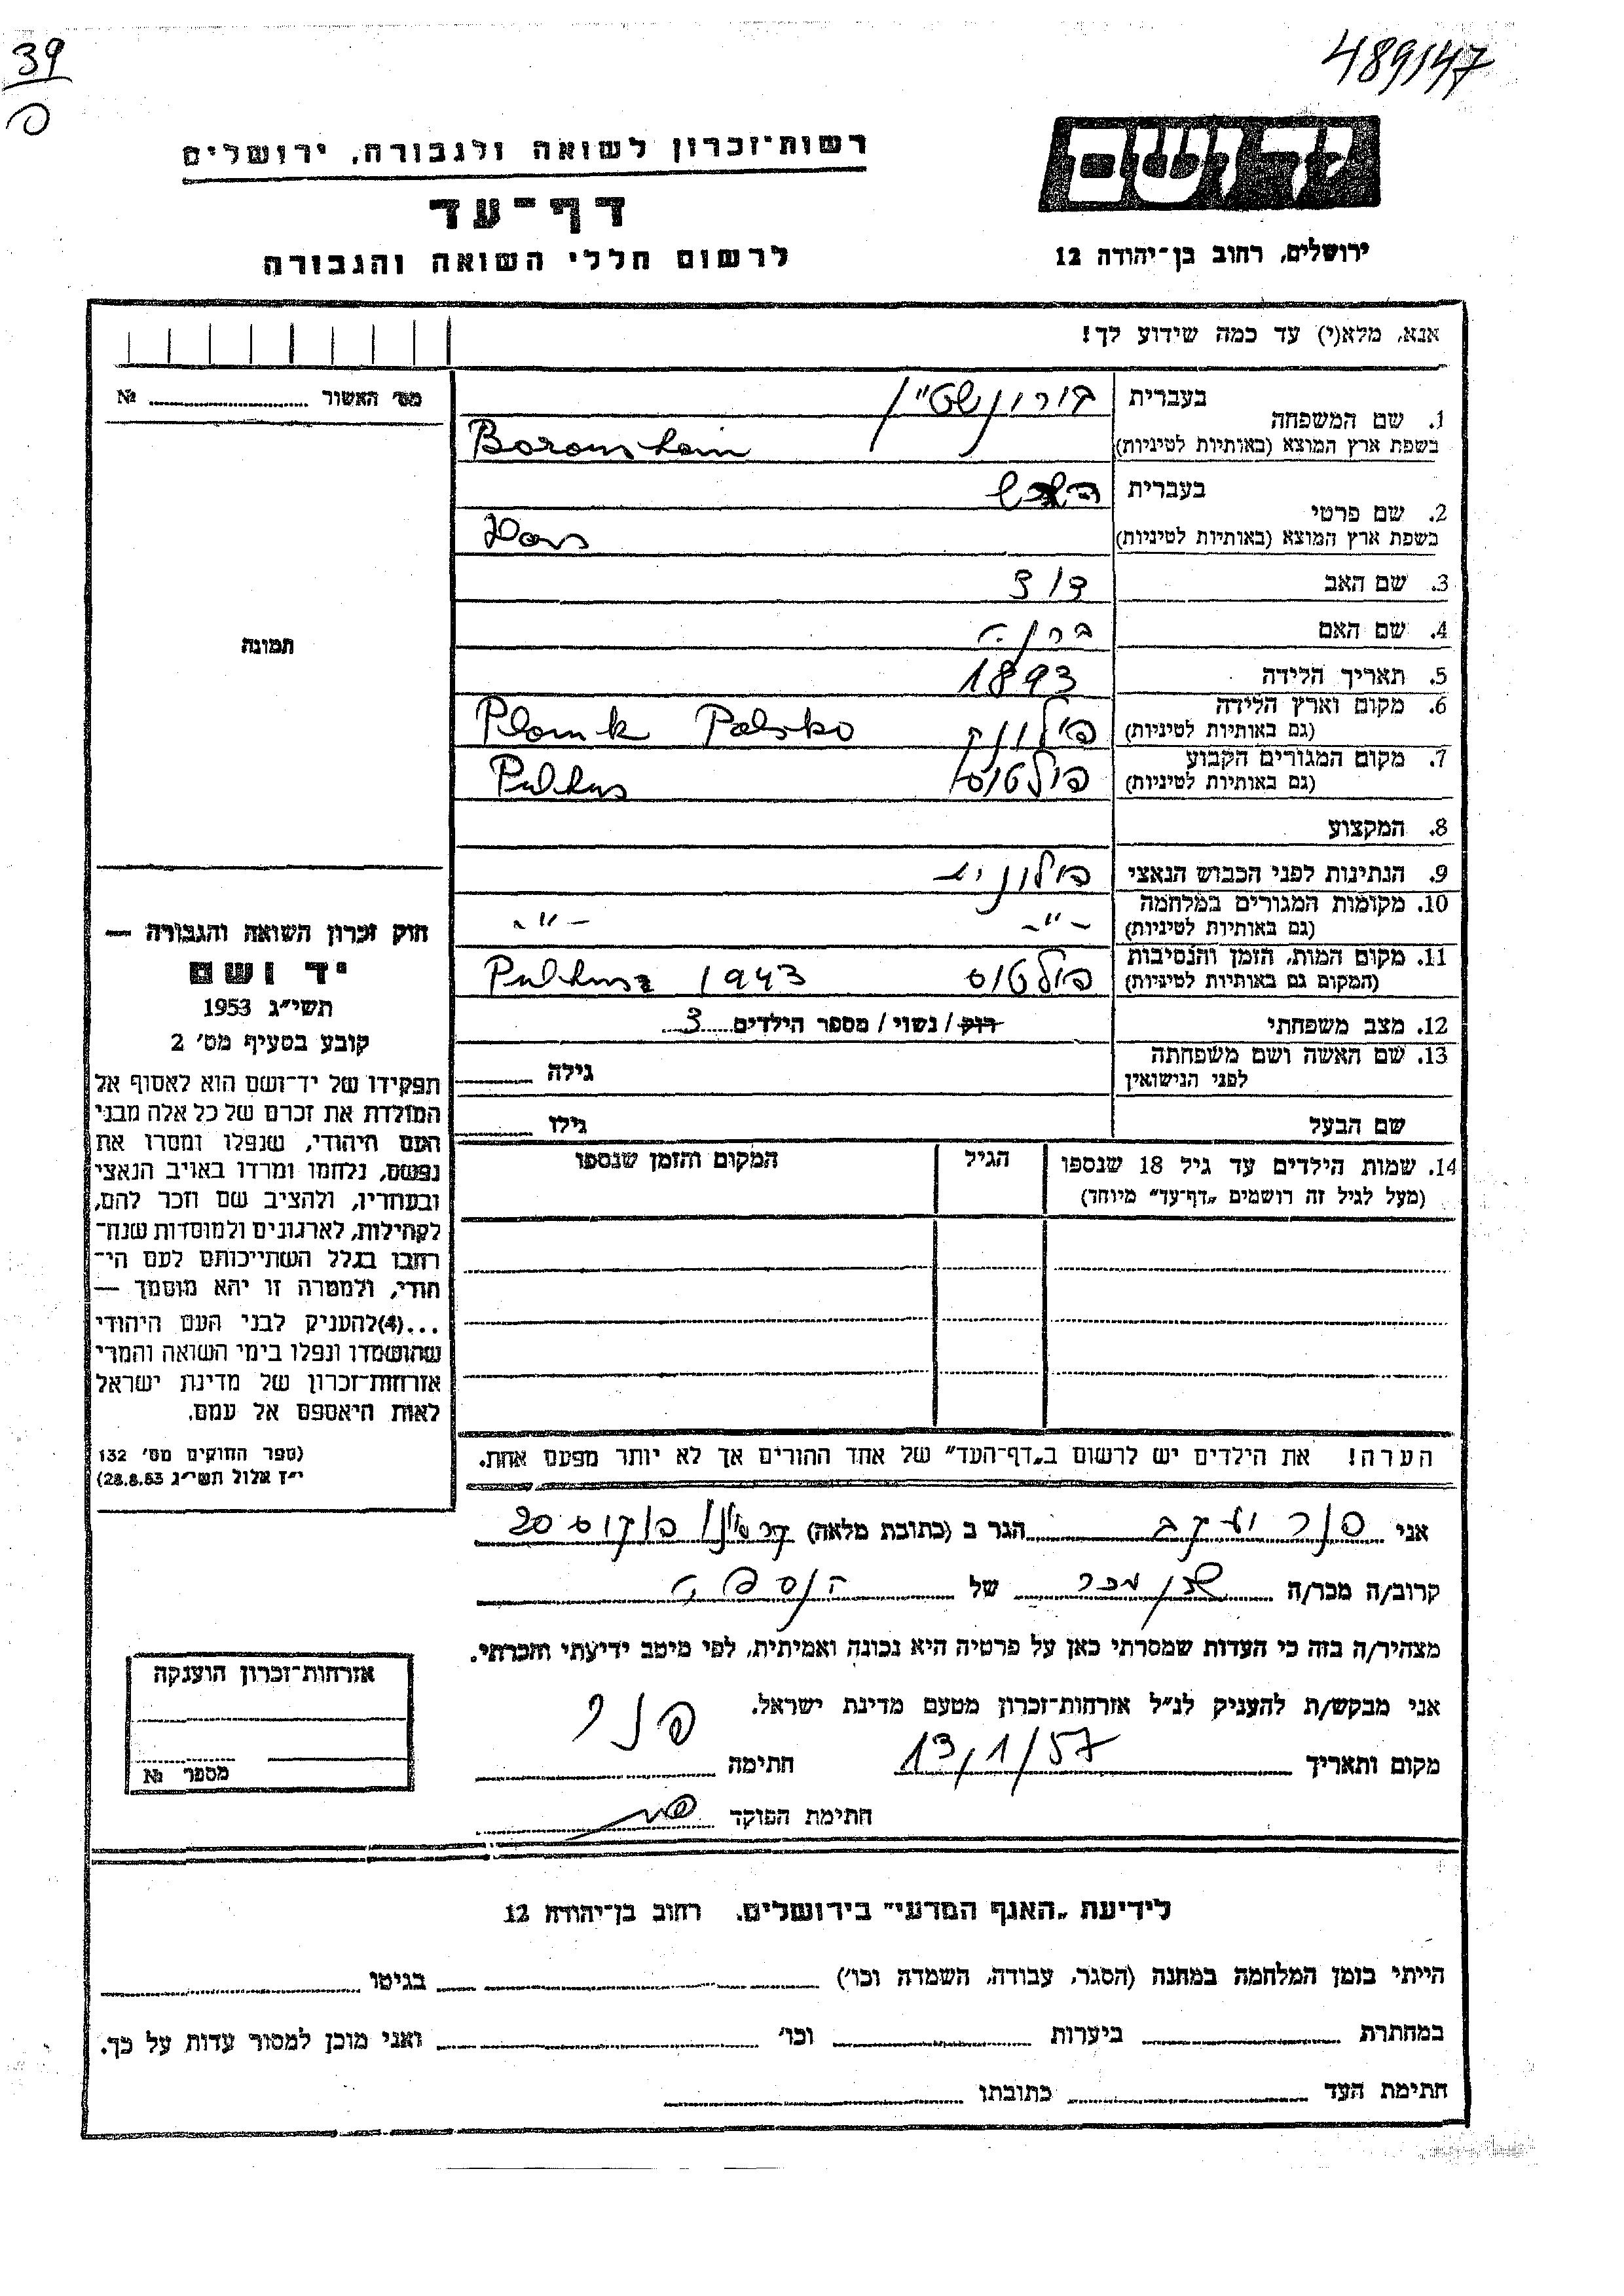 39
489147
יד ושם
רשות־זכרון לשואה ולגבורה, ירושלים
דף־עד
לרשום חללי השואה והגבורה
ירושלים, רחוב בן־יהודה 12
אנא, מלא(י) עד כמה שידוע לך!
מס׳ האשור № 
1. שם המשפחה
בעברית בורונשטיין
בשפת ארץ המוצא (באותיות לטיניות)
2. שם פרטי
בעברית
בשפת ארץ המוצא (באותיות לטיניות)
3. שם האב
4. שם האם
5. תאריך הלידה 1893
6. מקום וארץ הלידה
(גם באותיות לטיניות) Polsko
7. מקום המגורים הקבוע
(גם באותיות לטיניות) פולטוס
8. המקצוע
9. הנתינות לפני הכבוש הנאצי פולונית
10. מקומות המגורים במלחמה
(גם באותיות לטיניות) –״– –״–
11. מקום המות, הזמן והנסיבות
(המקום גם באותיות לטיניות) פולטוס 1943
12. מצב משפחתי רוק / נשוי / מספר הילדים 3
13. שם האשה ושם משפחתה
לפני הנישואין גילה
שם הבעל גילו
14. שמות הילדים עד גיל 18 שנספו
(מעל לגיל זה רושמים „דף־עד״ מיוחד)
הגיל
המקום והזמן שנספו
תמונה
חוק זכרון השואה והגבורה —
יד ושם
תשי״ג 1953
קובע בסעיף מס׳ 2
תפקידו של יד־ושם הוא לאסוף אל
המולדת את זכרם של כל אלה מבני
העם היהודי, שנפלו ומסרו את
נפשם, נלחמו ומרדו באויב הנאצי
ובעוזריו, ולהציב שם וזכר להם,
לקהילות, לארגונים ולמוסדות שנח־
רבו בגלל השתייכותם לעם הי־
הודי, ולמטרה זו יהא מוסמך —
...(4)להעניק לבני העם היהודי
שהושמדו ונפלו בימי השואה והמרי
אזרחות־זכרון של מדינת ישראל
לאות היאספם אל עמם.
(ספר החוקים מס׳ 132
י״ז אלול תשי״ג 28.8.53)
הערה! את הילדים יש לרשום ב„דף־העד״ של אחד ההורים אך לא יותר מפעם אחת.
אני פנר יעקב הגר ב (כתובת מלאה) 20
קרוב/ה מכר/ה שכן מכר של הנספה
מצהיר/ה בזה כי העדות שמסרתי כאן על פרטיה היא נכונה ואמיתית, לפי מיטב ידיעתי והכרתי.
אני מבקש/ת להעניק לנ״ל אזרחות־זכרון מטעם מדינת ישראל.
מקום ותאריך 13/1/57 חתימה פנר
חתימת הפוקד
אזרחות־זכרון הוענקה
מספר №
לידיעת „האגף המדעי״ בירושלים. רחוב בן־יהודה 12
הייתי בזמן המלחמה במחנה (הסגר, עבודה, השמדה וכו׳) בגיטו
במחתרת ביערות וכו׳ ואני מוכן למסור עדות על כך.
חתימת העד כתובתו